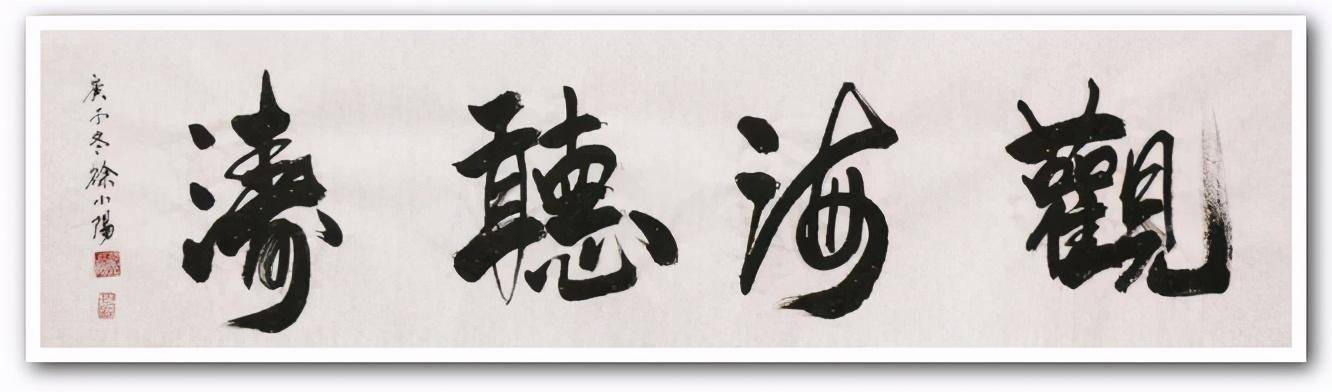 觀海聽濤
庚子冬徐小陽